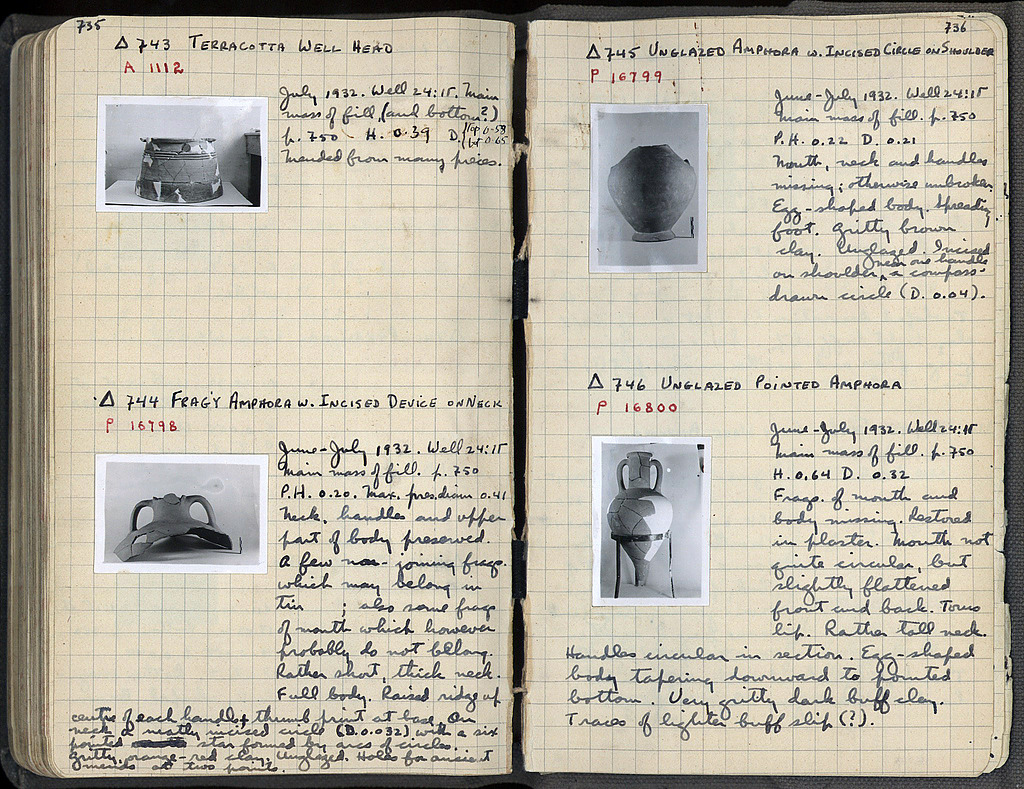 735
Δ 743 TERRACOTTA WELL HEAD
A 1112
July 1932. Well 24:15. Main
mass of fill (and bottom?)
p. 750 H. 0.39 D. {top 0.53
bt 0.65
Mended from many pieces.
Δ 744 FRAG'Y AMPHORA W. INCISED DEVICE ON NECK
P 16798
June-July 1932. Well 24:15
Main mass of fill. p. 750
P.H. 0.20. Max. pres. diam 0.41
Neck, handles and upper
part of body preserved.
A few non-joining frags.
which may belong in
Tin ; also some frags
of mouth which however
probably do not belong.
Rather short, thick neck.
Full body. Raised ridge up
centre of each handle & thumb print at base. On
neck a neatly incised circle (D. 0.032) with a six
pointed star formed by arcs of circles.
Gritty, orange-red clay. Unglazed. Holes for ancient
mends at two points.
736
Δ 745 UNGLAZED AMPHORA W. INCISED CIRCLE ON SHOULDER
P 16799
June-July 1932. Well 24:15
Main mass of fill. p. 750
P.H. 0.22 D. 0.21
Mouth, neck and handles
missing; otherwise unbroken.
Egg-shaped body. Spreading
foot. Gritty brown
clay. Unglazed. Incised
near one handle
on shoulder, a compass-
drawn circle (D. 0.04).
Δ 746 UNGLAZED POINTED AMPHORA
P 16800
June-July 1932. Well 24:15
Main mass of fill. p. 750
H. 0.64 D. 0.32
Frags. of mouth and
body missing. Restored
in plaster. Mouth not
quite circular, but
slightly flattened
front and back. Torus
lip. Rather tall neck.
Handles circular in section. Egg-shaped
body tapering downward to pointed
bottom. Very gritty dark buff clay.
Traces of lighter buff slip (?).